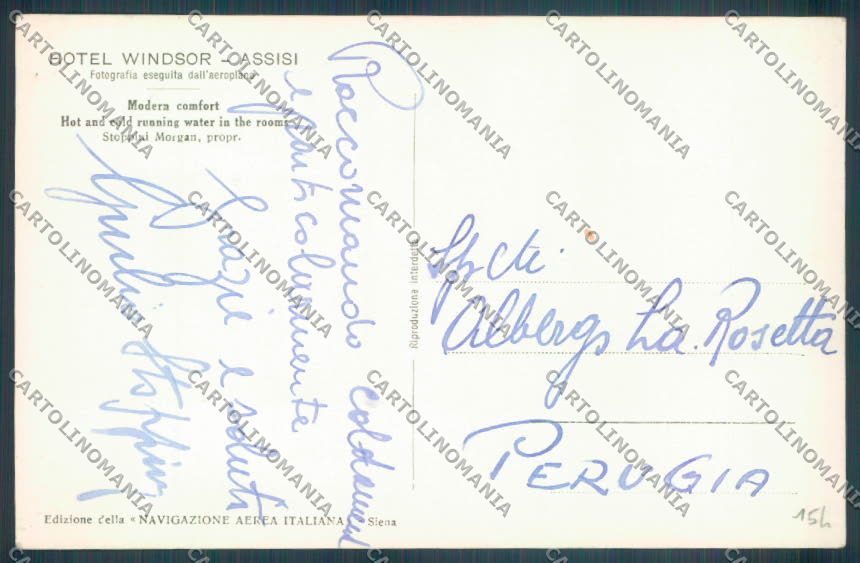 HOTEL WINDSOR - ASSISI
Fotografia eseguita dall'aeroplano
Modern comfort
Hot and cold running water in the rooms
Stoppini Morgan, propr.
Raccomando caldamente
e particolarmente
Grazie e saluti
Stoppini
Riproduzione interdetta
Sp.cti
Albergo La Rosetta
PERUGIA
Edizione della « NAVIGAZIONE AEREA ITALIANA » Siena
CARTOLINOMANIA